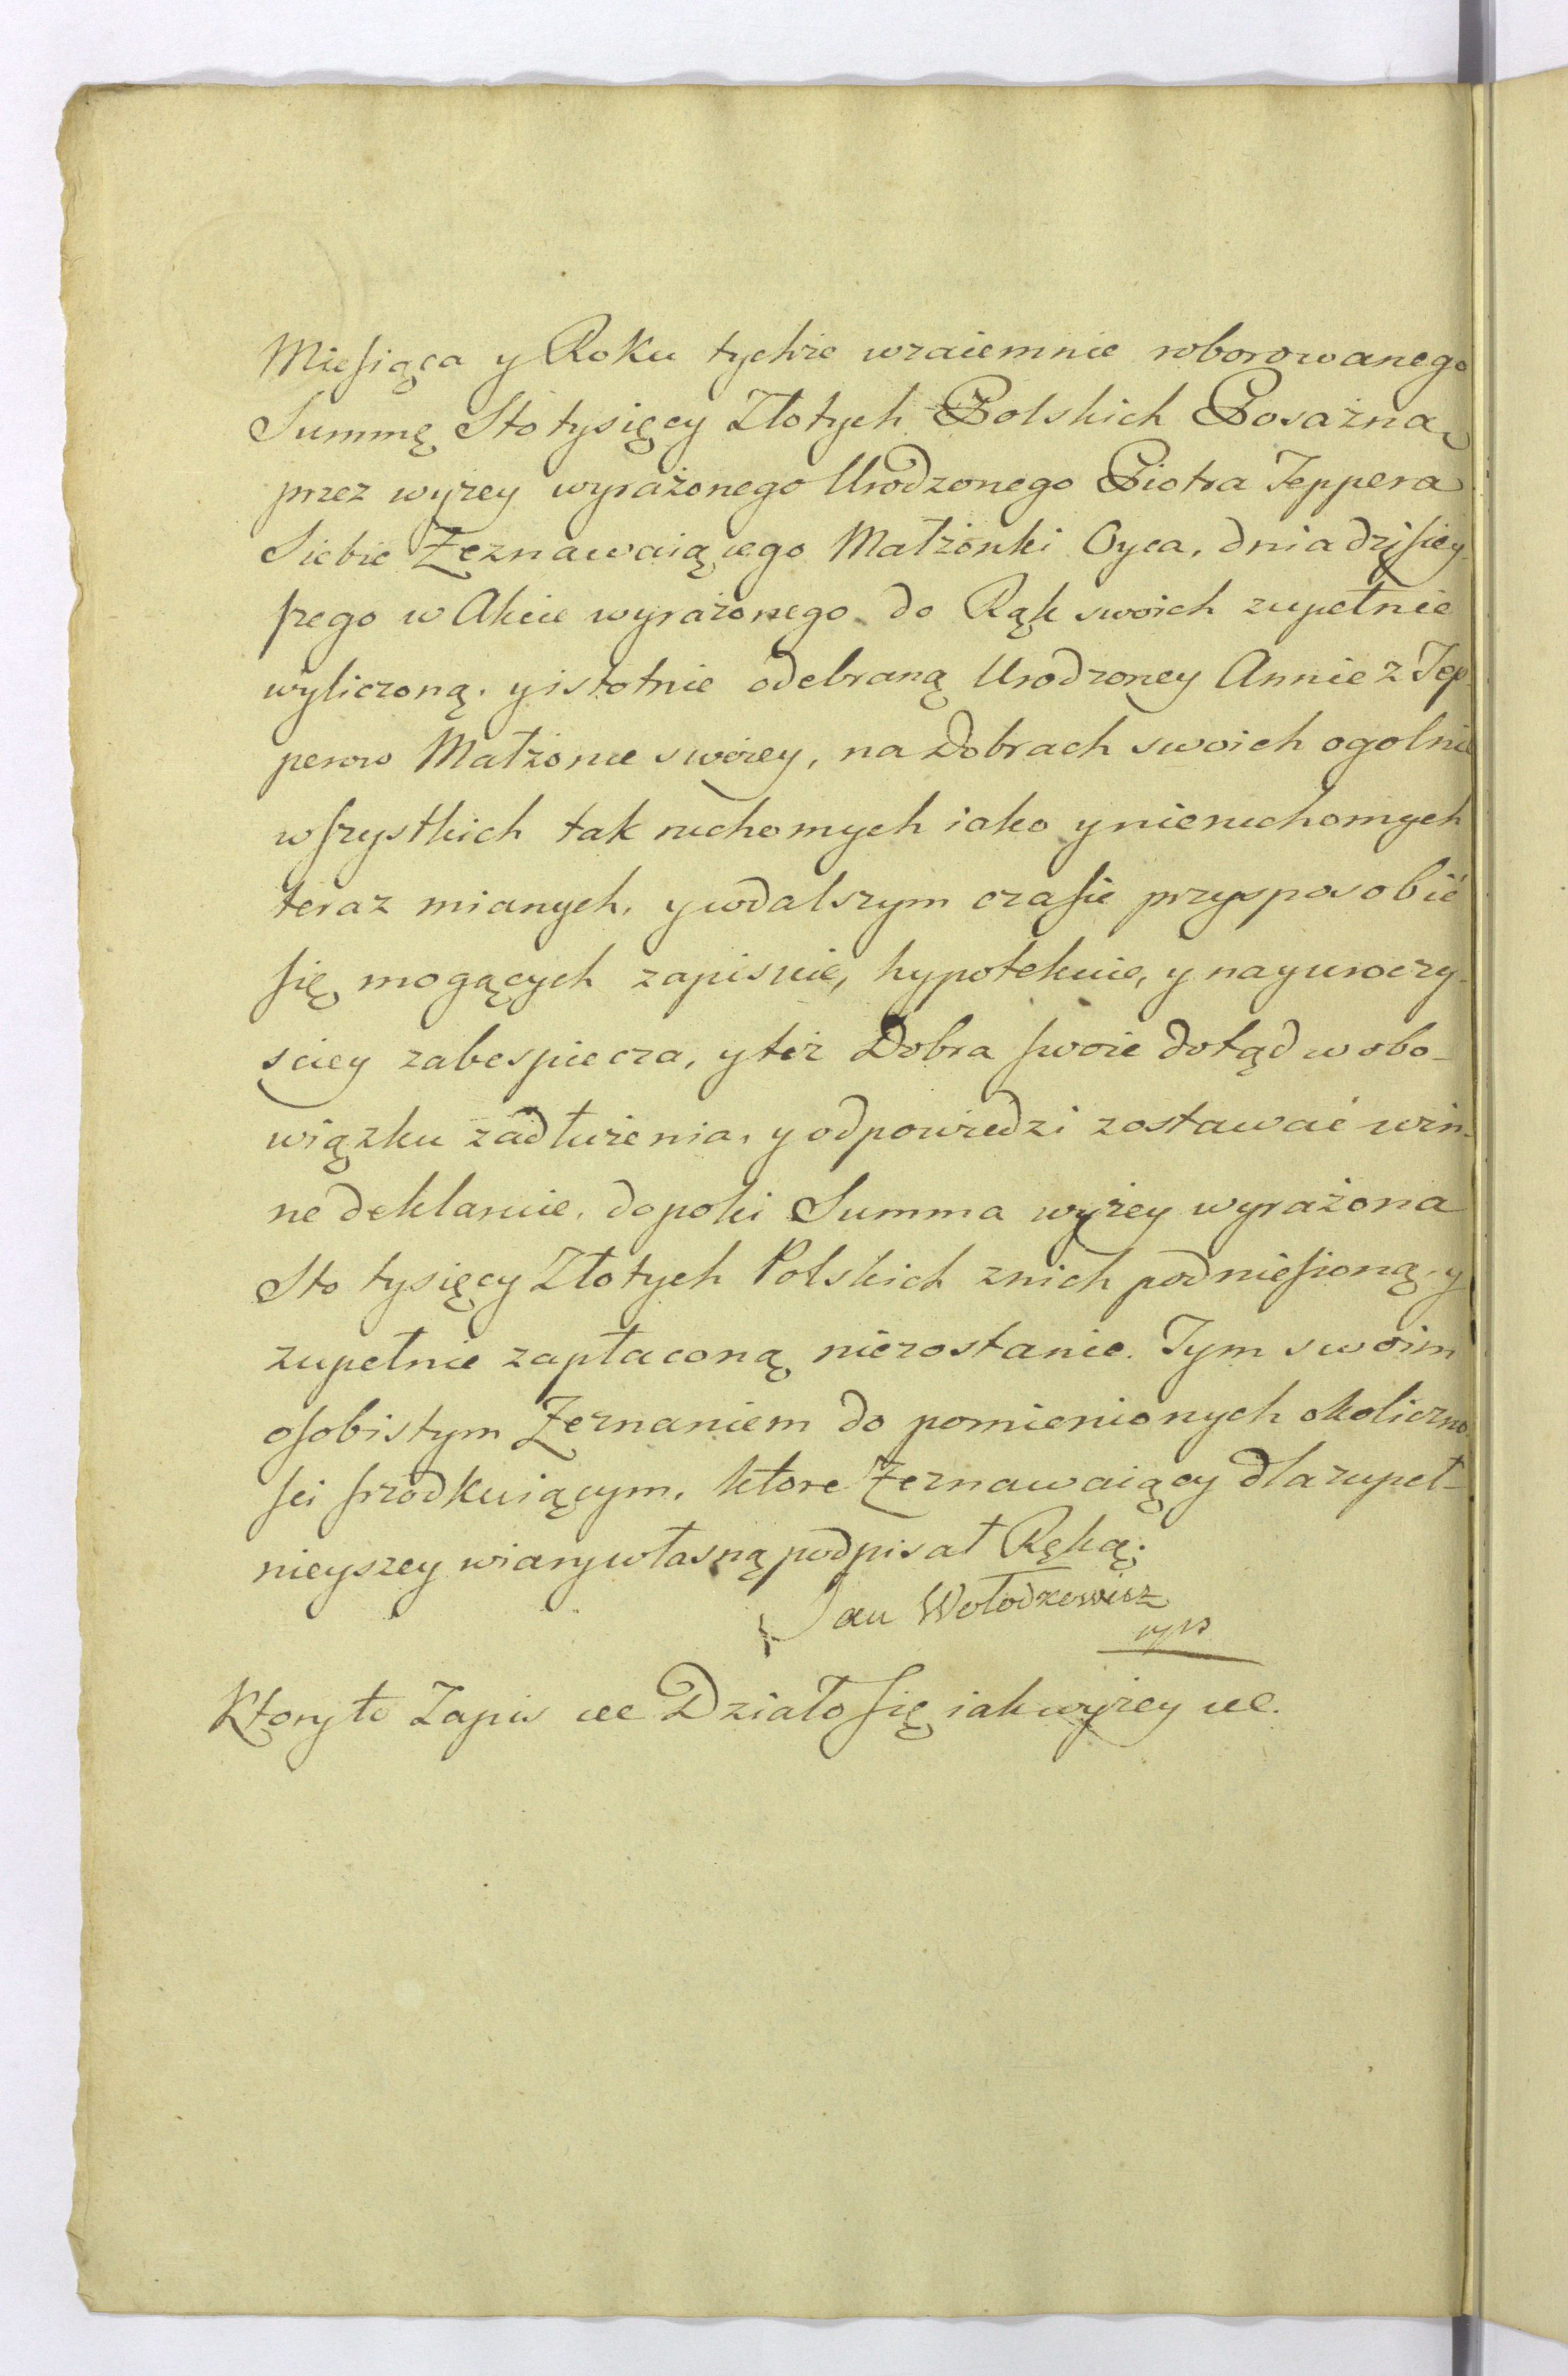 Miesiąca y Roku tychże wzaiemnie roborowanego
Summę Sto tysięcy Złotych Polskich Posażną
przez wyżey wyrażonego Urodzonego Piotra Teppera
Siebie Zeznawaiącego Małżonki Oyca, dnia dzisiey-
szego w Akcie wyrażonego do Rąk swoich zupełnie
wyliczoną, y istotnie odebraną Urodzoney Annie z Tep-
perow Małżonce swoiey, na Dobrach swoich ogolnie
wszystkich tak ruchomych iako y nieruchomych
teraz mianych, y w dalszym czasie przysposobić
się mogących zapisuie, hypotekuie, y nayuroczy-
sciey zabespiecza, y też Dobra swoie dotąd w obo-
wiązku zadłużenia, y odpowiedzi zostawać win-
ne deklaruie, dopoki Summa wyżey wyrażona
Sto tysięcy Złotych Polskich z nich podniesioną, y
zupełnie zapłaconą niezostanie. Tym swoim
osobistym Zeznaniem do pomienionych okoliczno-
sci srzodkuiącym, ktore Zeznawaiący dla zupeł-
nieyszey wiary własną podpisał Ręką.
Jan Wołodkowicz
mp
Ktory to Zapis &c Działo się iak wyżey &c.